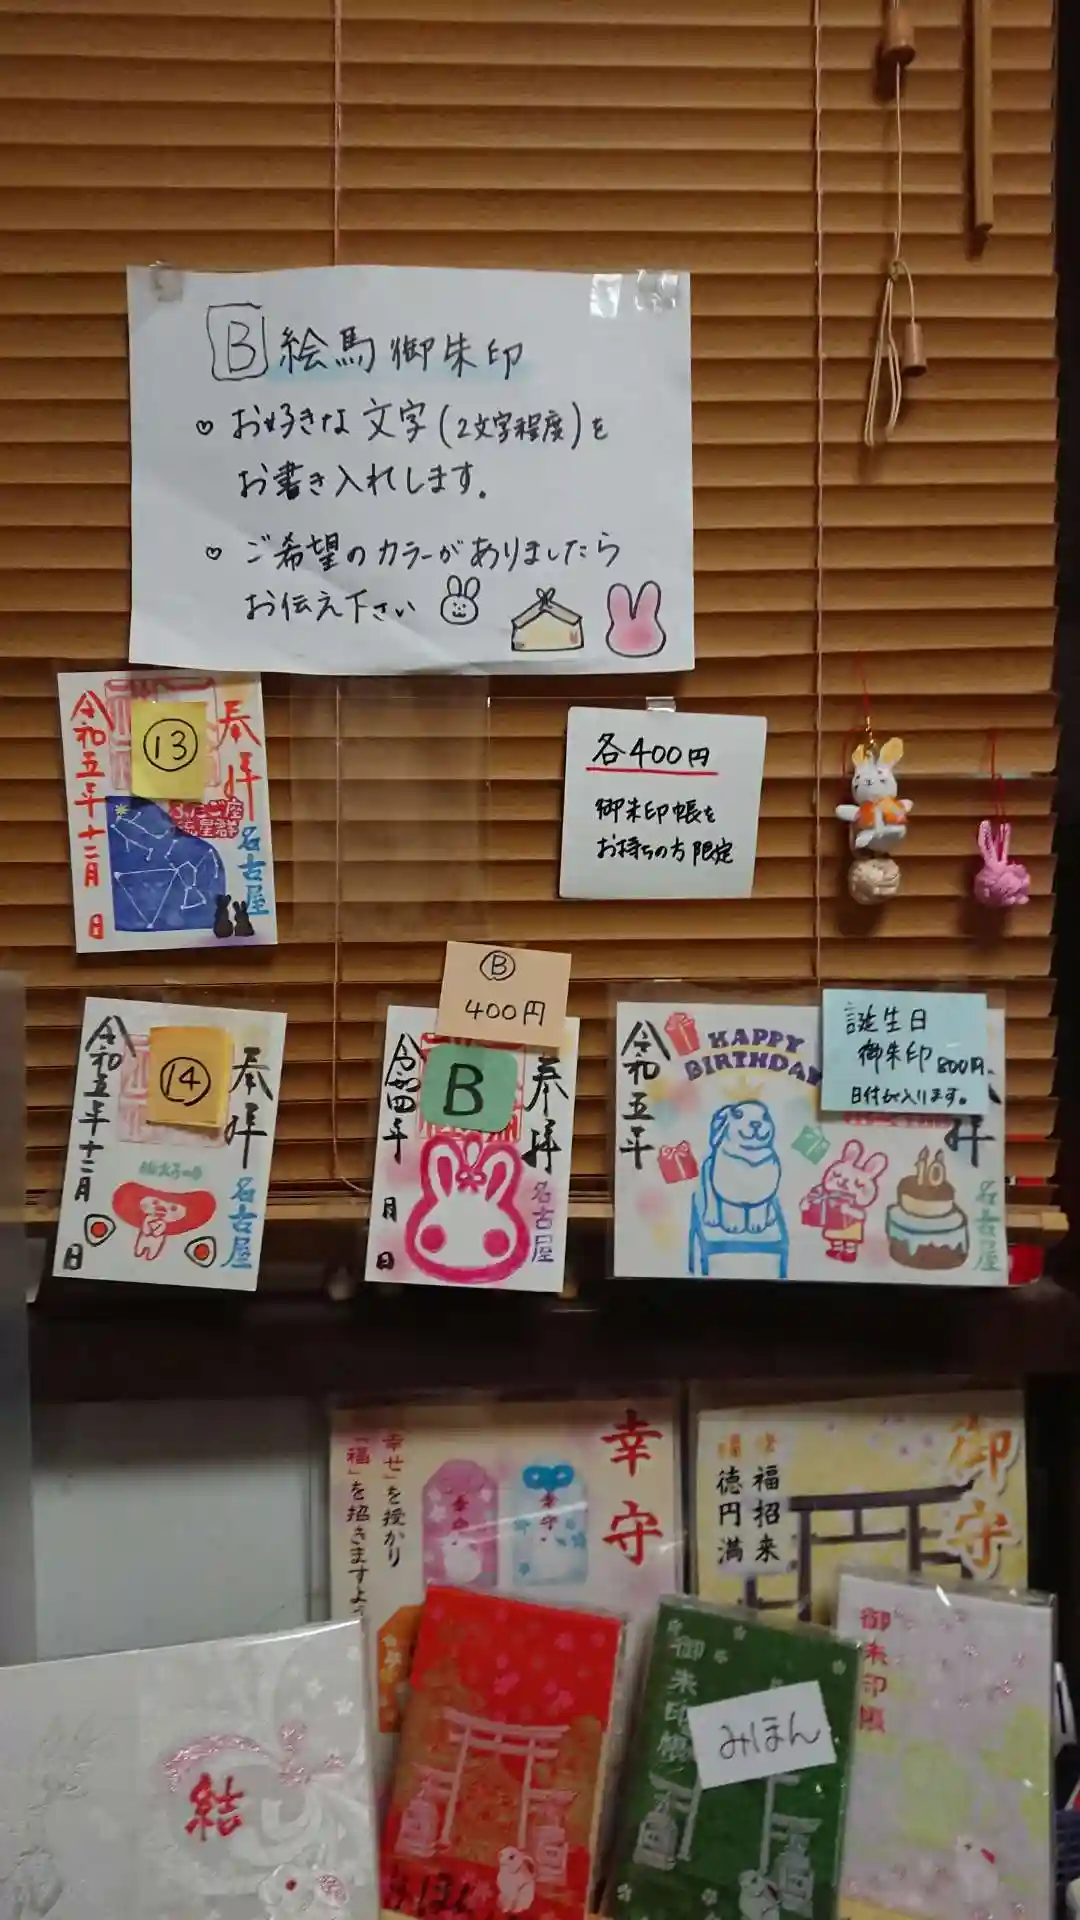 B 絵馬御朱印
♡ お好きな文字(2文字程度)を
お書き入れします。
♡ ご希望のカラーがありましたら
お伝え下さい
奉拝
⑬
令和五年十二月 日
ふたご座
流星群
名古屋
各400円
御朱印帳を
お持ちの方限定
奉拝
⑭
令和五年十二月 日
名古屋
Ⓑ
400円
奉拝
B
令和四年 月 日
名古屋
誕生日
御朱印 800円。
日付が入ります。
HAPPY
BIRTHDAY
拝
令和五年
10
名古屋
幸守
幸守
幸せ」を授かり
「福」を招きますよう
御守
福招来
徳円満
結
みほん
御朱印帳
みほん
御朱印帳